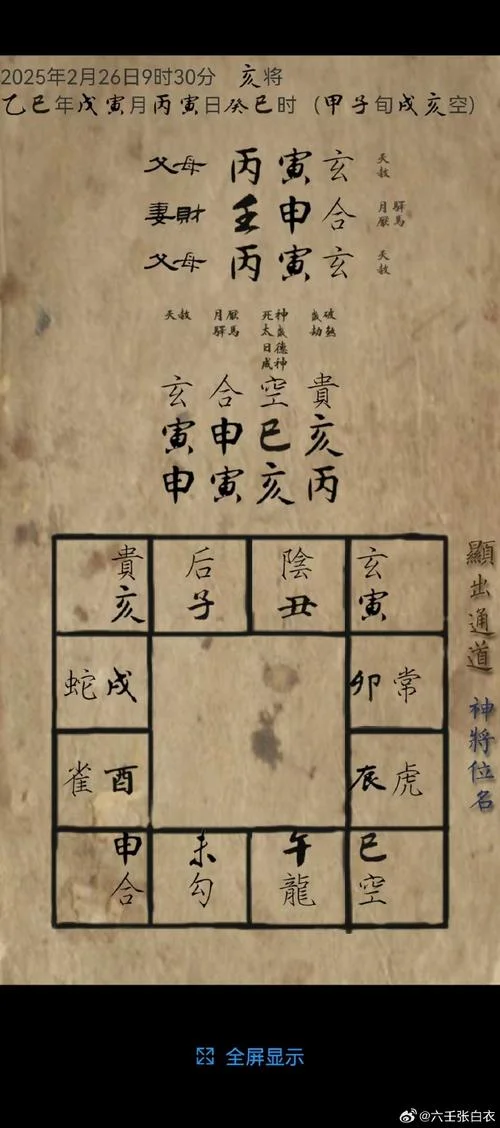 2025年2月26日9时30分 亥将
乙巳年戊寅月丙寅日癸巳时（甲子旬戌亥空）
父母 丙寅玄 天赦
妻財 壬申合 月厭 驛馬
父母 丙寅玄 天赦
天赦 月厭 死神 歲破
驛馬 太歲 劫煞
日德
成神
玄合空貴
寅申巳亥
申寅亥丙
貴 后 陰 玄
亥 子 丑 寅
蛇戌 卯常
雀酉 辰虎
申 未 午 巳
合 勾 龍 空
顯出通道
神將位名
全屏显示
@六壬张白衣